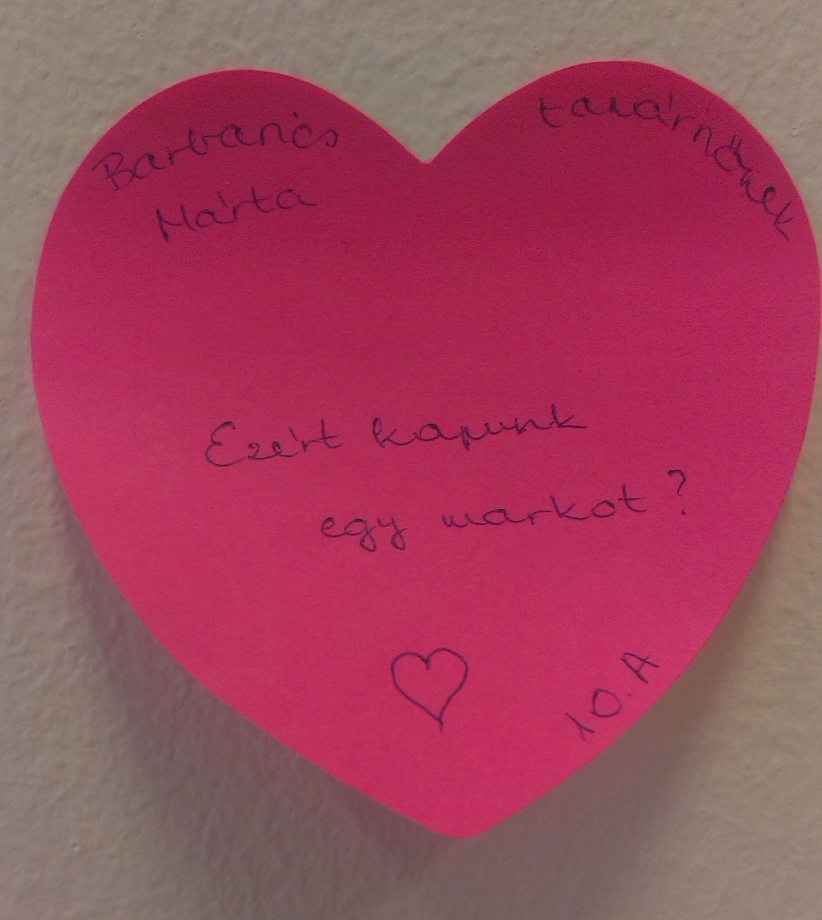 Barbarics
Márta
tanárnőnek
Ezért kapunk
egy markot?
10.A